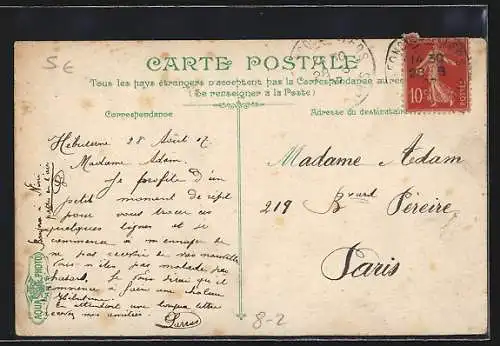 5€
CARTE POSTALE
Tous les pays étrangers n'acceptent pas la Correspondance au
(Se renseigner à la Poste)
Correspondance
Adresse du destinataire
14 30
28 8
10c
POSTES
28 Août 07
Madame Adam.
Je profite d'un
petit moment de répit
pour vous tracer ces
quelques lignes et je
commence à m'ennuyer de
ne pas recevoir de vos nouvelles
êtes pas malade par
hasard. Je vous dirai qu'il
commence à faire un chaleur
En attendant une longue lettre
recevez nos amitiés.
Madame Adam
219 Bd Péreire
Paris
AQUA PHOTO
8-2